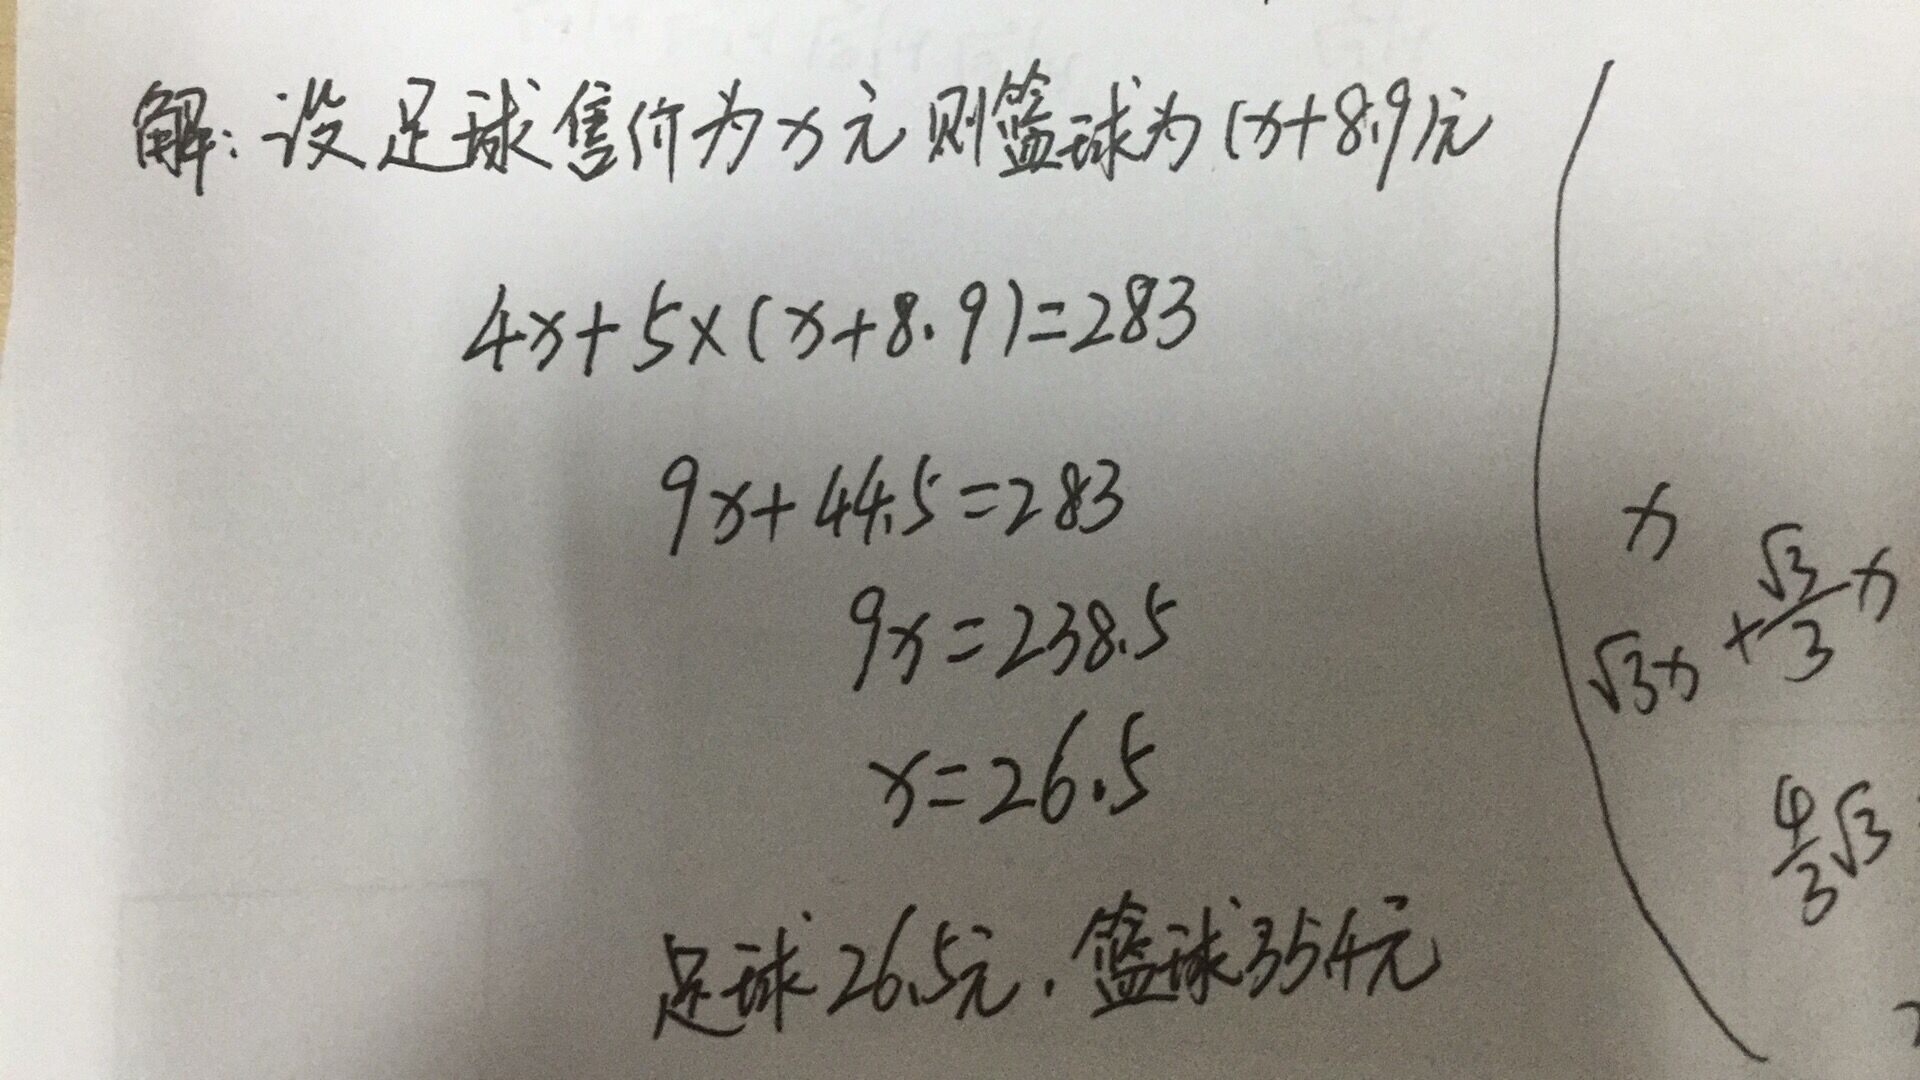 解:设足球售价为x元则篮球为(x+8.9)元
4x+5×(x+8.9)=283
9x+44.5=283
9x=238.5
x=26.5
足球26.5元.篮球35.4元
x
√3x+√3/3x
4/3√3